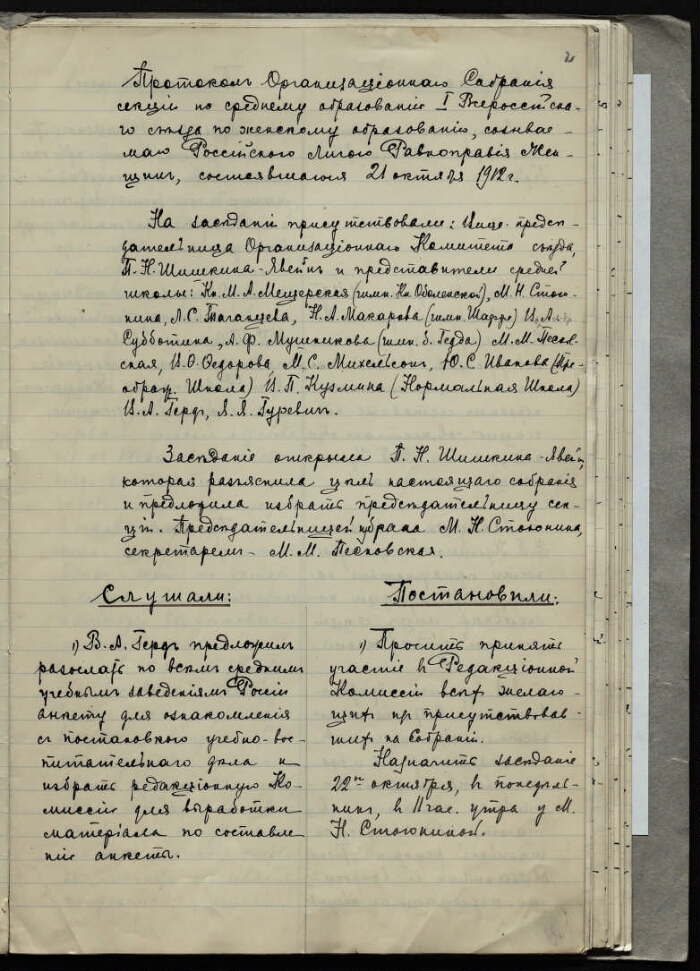 2
Протоколъ Организаціоннаго Собранія
секціи по среднему образованію I Всероссійска-
го съѣзда по женскому образованію, созывае-
маго Россійского Лигою Равноправія Жен-
щинъ, состоявшагося 21 октября 1912 г.
На засѣданіи присутствовали: Вице-предсѣ-
дательница Организаціоннаго Комитета съѣзда,
П. Н. Шишкина-Явейнъ и представители средней
школы: Кн. М. А. Мещерская (гимн. Кн. Оболенской), М. Н. Стою-
нина, Л. С. Таганцева, Н. А. Макарова (гимн. Шаффе)
Субботина, А. Ф. Мушникова (гимн. б. Гедда) М. М. Песков-
ская, О. Ѳедорова, М. С. Михельсонъ, Ю. С. Иванова (Пре-
ображ. Школа) П. Кузмина (Нормальная Школа)
В. А. Гердъ, Я. Я. Гуревичъ.
Засѣданіе открыла П. Н. Шишкина-Явейнъ,
которая разъяснила цѣль настоящаго собранія
и предложила избрать предсѣдательницу сек-
ціи. Предсѣдательницей избрана М. Н. Стоюнина,
секретаремъ – М. М. Песковская.
Слушали:
Постановили:
1) В. А. Гердъ предложилъ
разослать по всѣмъ среднимъ
учебнымъ заведеніямъ Россіи
анкету для ознакомленія
съ постановкого учебно-вос-
питательнаго дѣла и
избрать редакціонную Ко-
миссію для выработки
матеріала по составле-
нію анкеты.
1) Просить принять
участіе въ Редакціонной
Комиссіи всѣхъ желаю-
щихъ изъ присутствовав-
шихъ на Собраніи.
Назначить засѣданіе
22го октября, въ понедѣль-
никъ, въ 11 час. утра у М.
Н. Стоюниной.